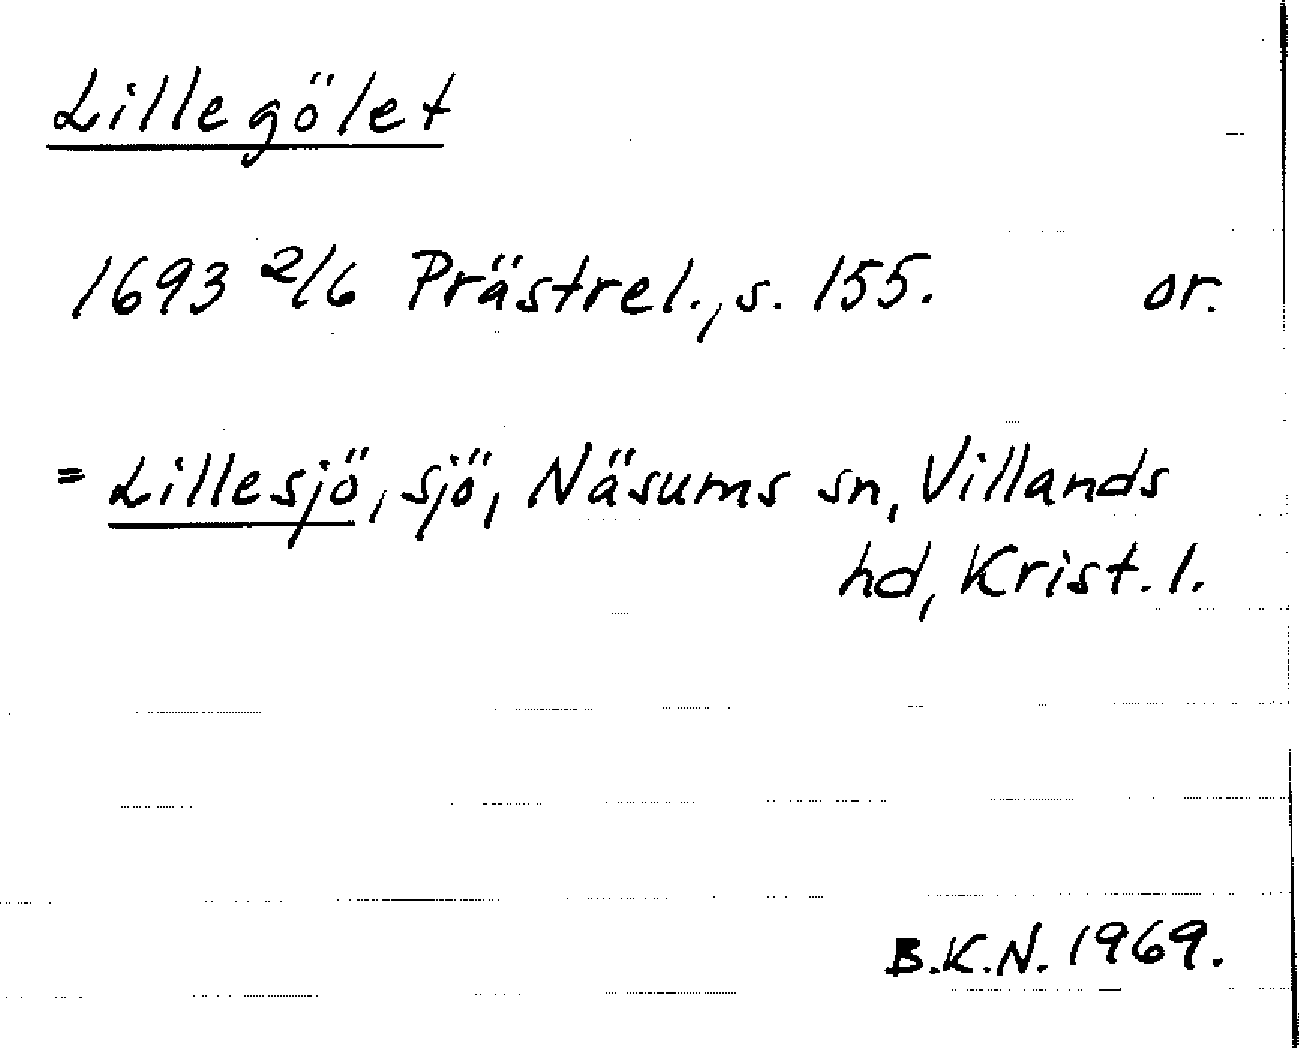 Lillegölet
1693 2/6 Prästrel., s. 155. or.
= Lillesjö, sjö, Näsums sn, Villands
hd, Krist. l.
B.K.N. 1969.